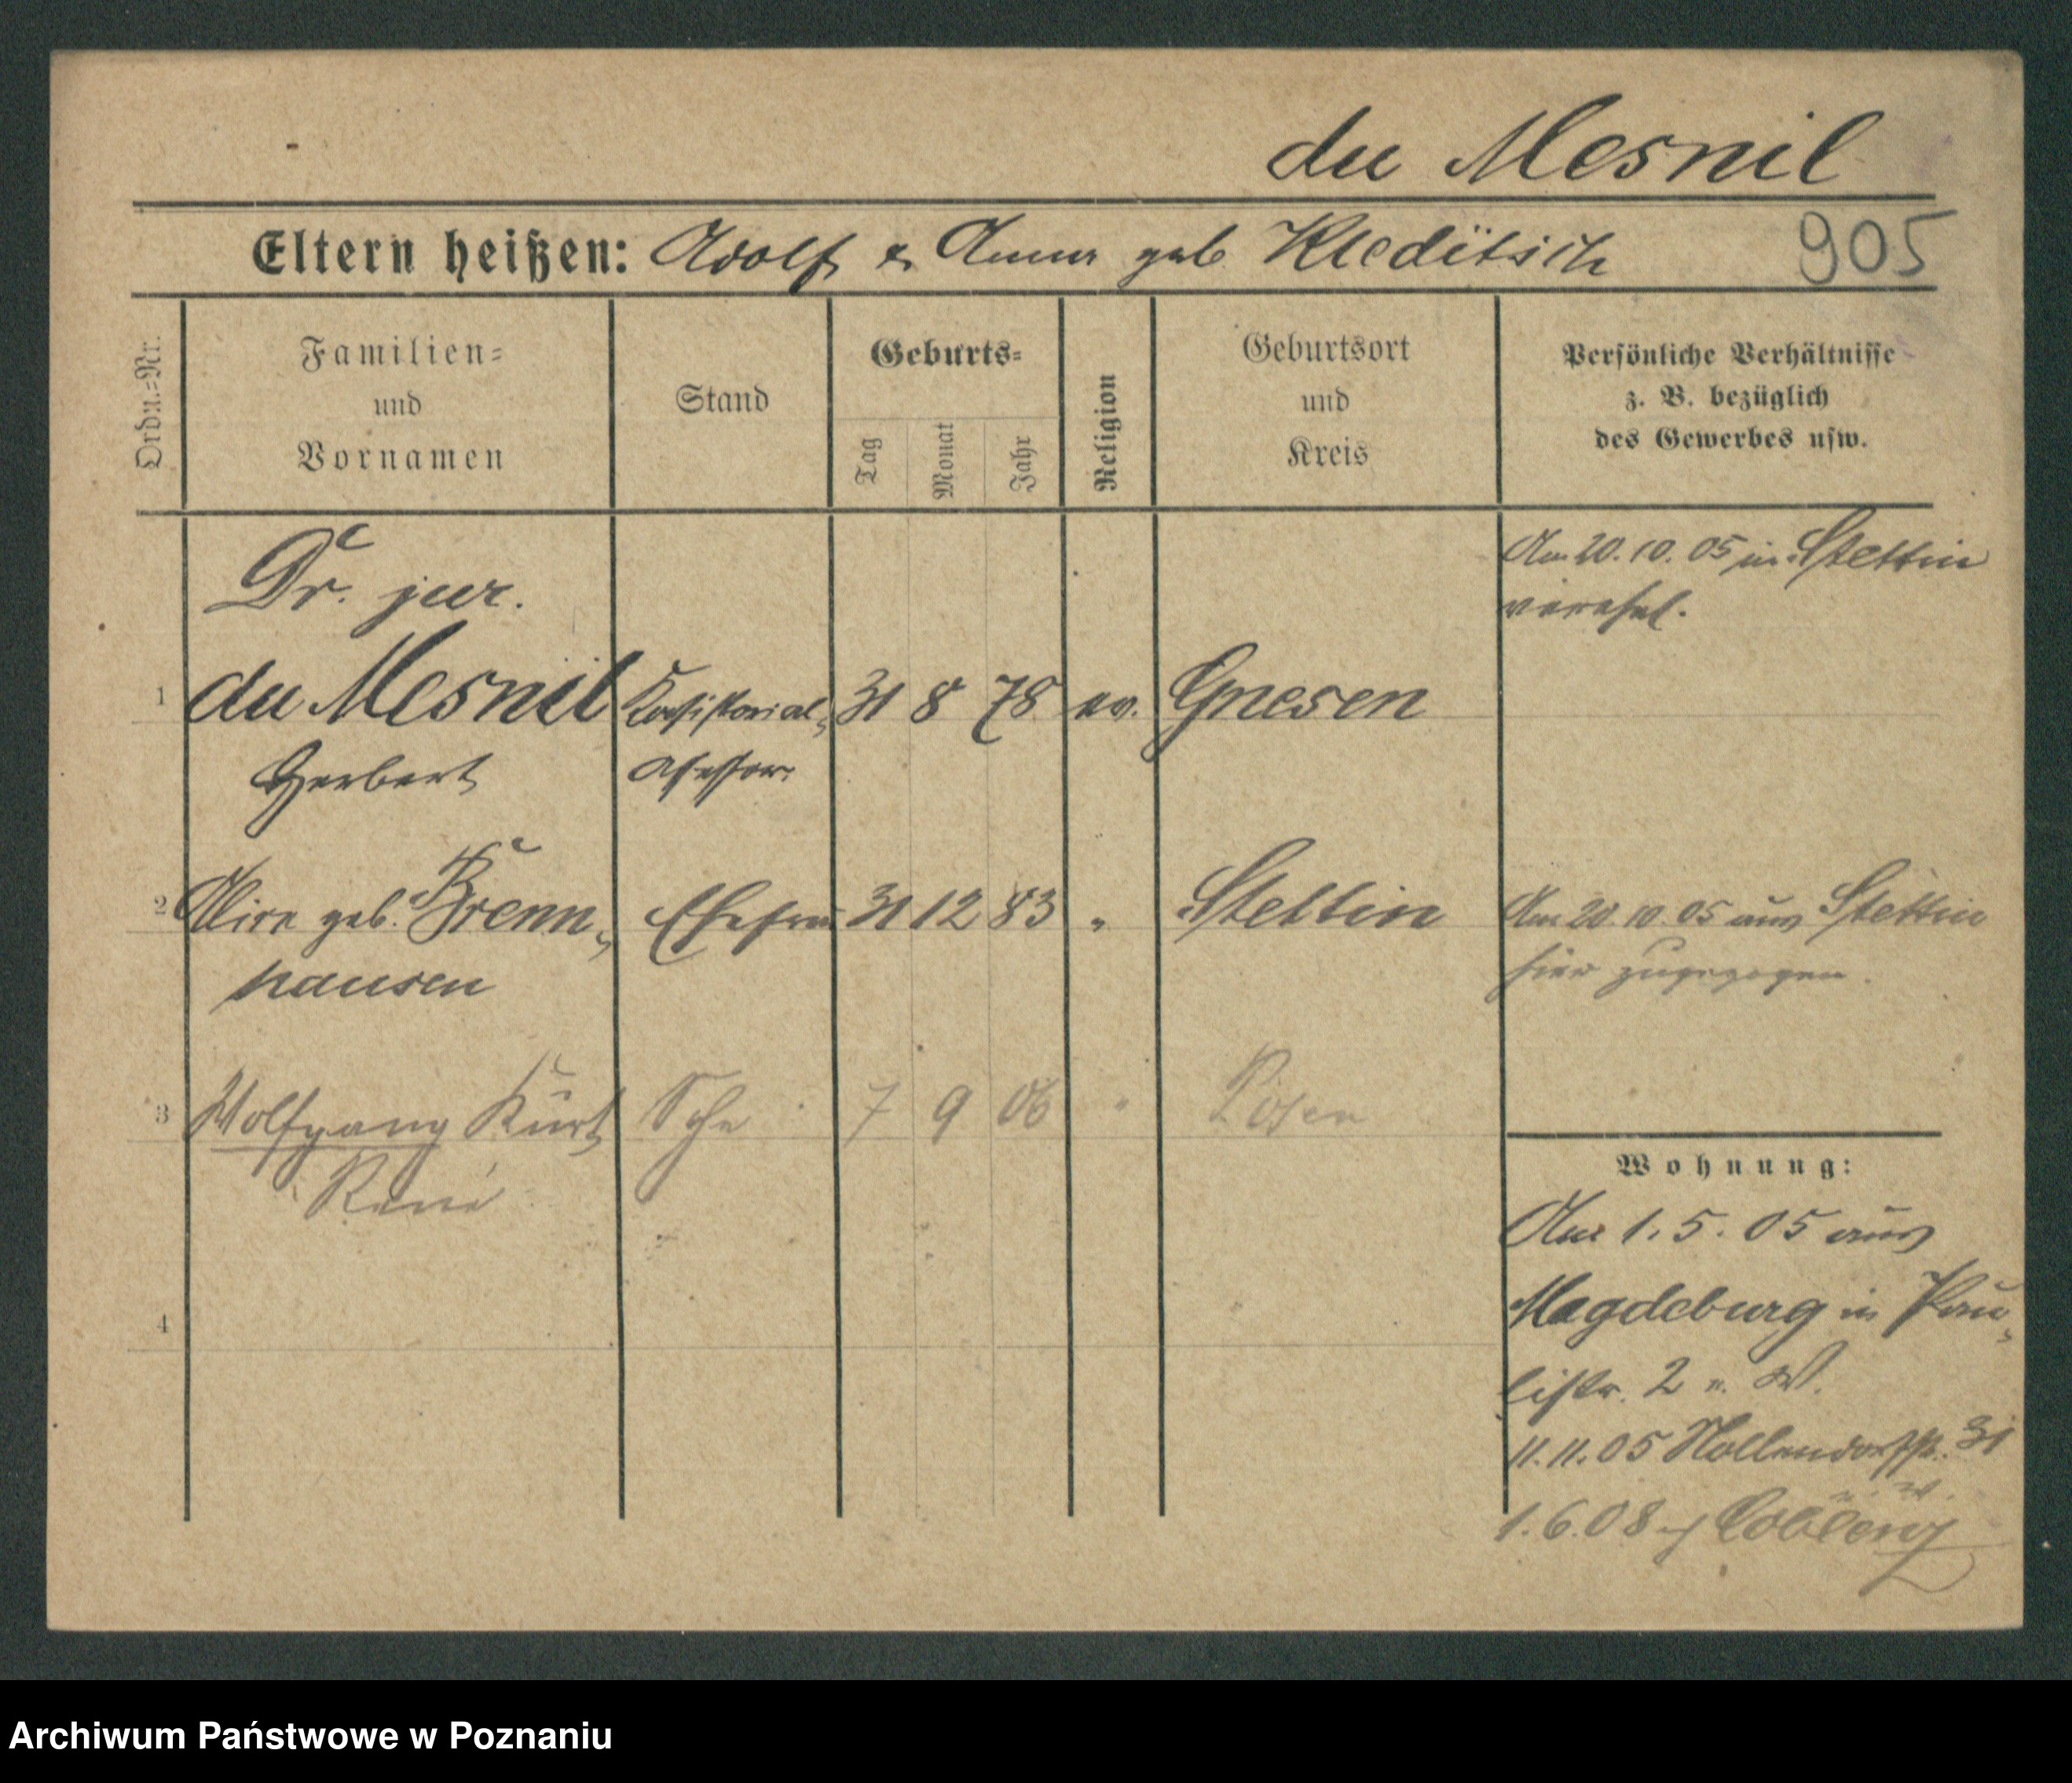 du Mesnil
Eltern heißen: Adolf & Anna geb Kleditsch
905
Ordn.=Nr.
Familien=
und
Vornamen
Stand
Geburts=
Tag
Monat
Jahr
Religion
Geburtsort
und
Kreis
Persönliche Verhältnisse
z. B. bezüglich
des Gewerbes usw.
Dr. jur.
Am 20. 10. 05 in Stettin
verehel.
1 du Mesnil Konsistorial- 31 8 78 ev. Gnesen
Herbert assessor
2 geb. Brenn- Ehefrau 31 12 83 " Stettin Am 20. 10. 05 aus Stettin
hausen hier zugezogen.
3 Wolfgang Kurt Sohn 7 9 06 " Posen
René
Wohnung:
Am 1. 5. 05 aus
Magdeburg in Pau-
listr. 2 n. W.
4
11. 11. 05 Nollendorfstr. 31
n. W.
1. 6. 08 Coblenz
Archiwum Państwowe w Poznaniu